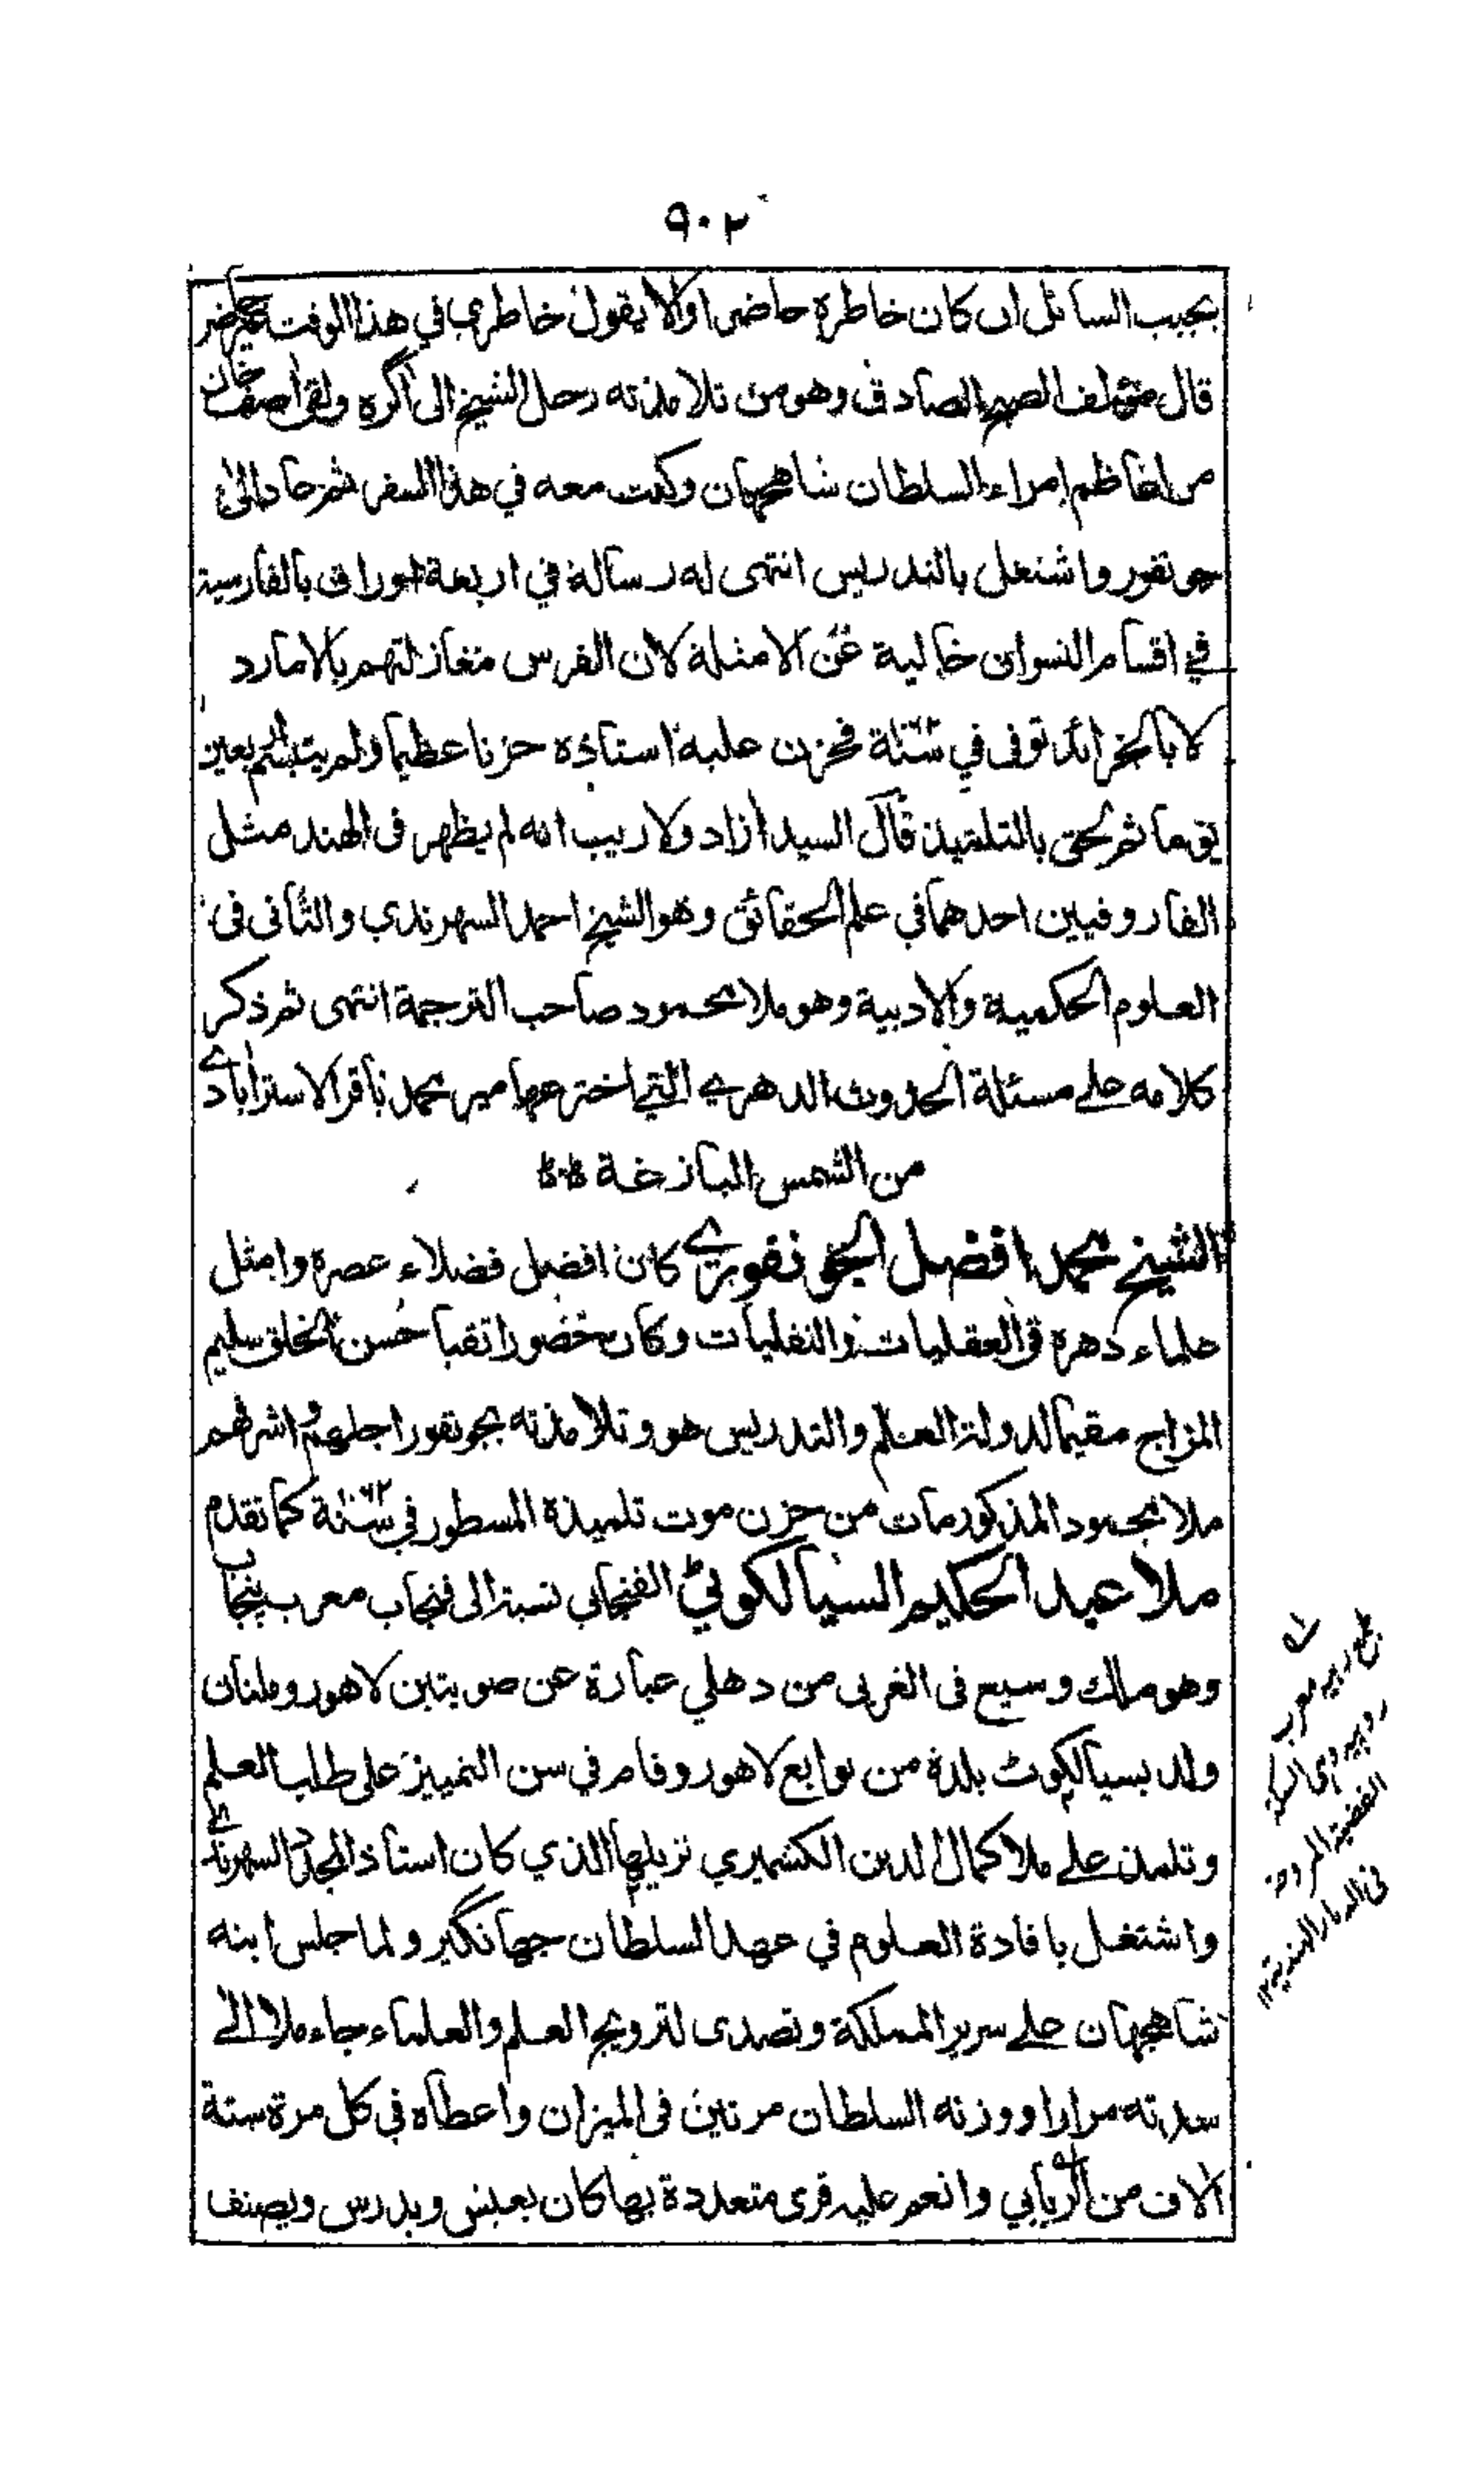 ٩٠٢
يجيب السائل ان كان خاطره حاضرا والا يقول خاطري في هذا الوقت غير حاضر
قال مؤلف الصبح الصادق وهو من تلامذته رحل الشيخ الى اگره ولقي اصف خان
من اعاظم امراء السلطان شاهجهان وكنت معه في هذا السفر ثم عاد الى
جونفور واشتغل بالتدريس انتهى له رسالة في اربعة اوراق بالفارسية
في اقسام النسوان خالية عن الامثلة لان الفرس مغازلتهم بالامارد
لا بالخرائد توفى في سنة فحزن عليه استاذه حزنا عظيما ولم يتبسم اربعين
يوما ثم لحق بالتلميذ قال السيد آزاد ولا ريب انه لم يظهر فى الهند مثل
الفاروقيين احدهما في علم الحقائق وهو الشيخ احمد السهرندي والثانى فى
العلوم الحكمية والادبية وهو ملا محمود صاحب الترجمة انتهى ثم ذكر
كلامه على مسئلة الحدوث الدهري التي اخترعها مير محمد باقر الاسترابادي
من الشمس البازغة
الشيخ محمد افضل الجونفوري كان افضل فضلاء عصره وامثل
علماء دهره في العقليات والنقليات وكان حصورا تقيا حسن الخلق سليم
المزاج مقيما لدولة العلم والتدريس هو وتلامذته بجونفور اجلهم واشرفهم
ملا محمود المذكور مات من حزن موت تلميذه المسطور في سنة كما تقدم
ملا عبد الحكيم السيالكوٹي الفنجابي نسبة الى فنجاب معرب پنجاب
وهو ملك وسيع فى الغربى من دهلي عبارة عن صوبتين لاهور وملتان
ولد بسيالكوٹ بلدة من توابع لاهور وقام في سن التمييز على طلب العلم
وتلمذ على ملا كمال الدين الكشميري نزيلها الذي كان استاذ المجدد السهرندي
واشتغل بافادة العلوم في عهد السلطان جهانگير ولما جلس ابنه
شاهجهان على سرير المملكة وتصدى لترويج العلم والعلماء جاء ملا الى
سدته مرارا ووزنه السلطان مرتين فى الميزان واعطاه في كل مرة ستة
الاف من الربابي وانعم عليه قرى متعددة بها كان يعيش ويدرس ويصنف
معرب
روپيه وهى السكة
الفضية المروجة
فى الديار الهندية